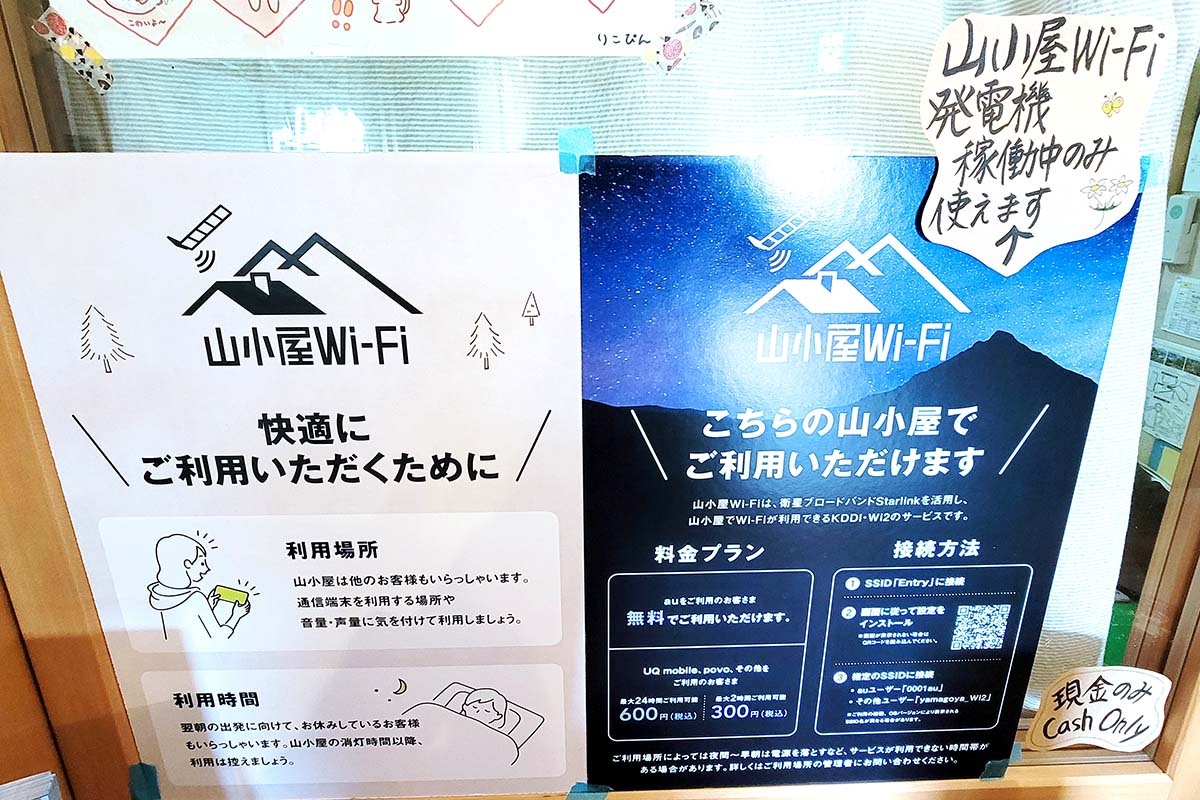 このいよ〜
りこぴん
山小屋Wi-Fi
発電機
稼働中のみ
使えます
↑
山小屋Wi-Fi
快適に
ご利用いただくために
利用場所
山小屋は他のお客様もいらっしゃいます。
通信端末を利用する場所や
音量・声量に気を付けて利用しましょう。
利用時間
翌朝の出発に向けて、お休みしているお客様
もいらっしゃいます。山小屋の消灯時間以降、
利用は控えましょう。
山小屋Wi-Fi
こちらの山小屋で
ご利用いただけます
山小屋Wi-Fiは、衛星ブロードバンドStarlinkを活用し、
山小屋でWi-Fiが利用できるKDDI・Wi2のサービスです。
料金プラン
auをご利用のお客さま
無料でご利用いただけます。
UQ mobile、povo、その他を
ご利用のお客さま
最大24時間ご利用可能
600円(税込)
最大2時間ご利用可能
300円(税込)
接続方法
1 SSID「Entry」に接続
2 画面に従って設定を
インストール
※画面が表示されない場合は
QRコードを読み込んでください。
3 指定のSSIDに接続
・auユーザー「0001au」
・その他ユーザー「yamagoya_Wi2」
※ご利用の機種、OSバージョンにより表示される
SSID名が異なる場合があります。
ご利用場所によっては夜間〜早朝は電源を落とすなど、サービスが利用できない時間帯が
ある場合があります。詳しくはご利用場所の管理者にお問い合わせください。
現金のみ
Cash Only